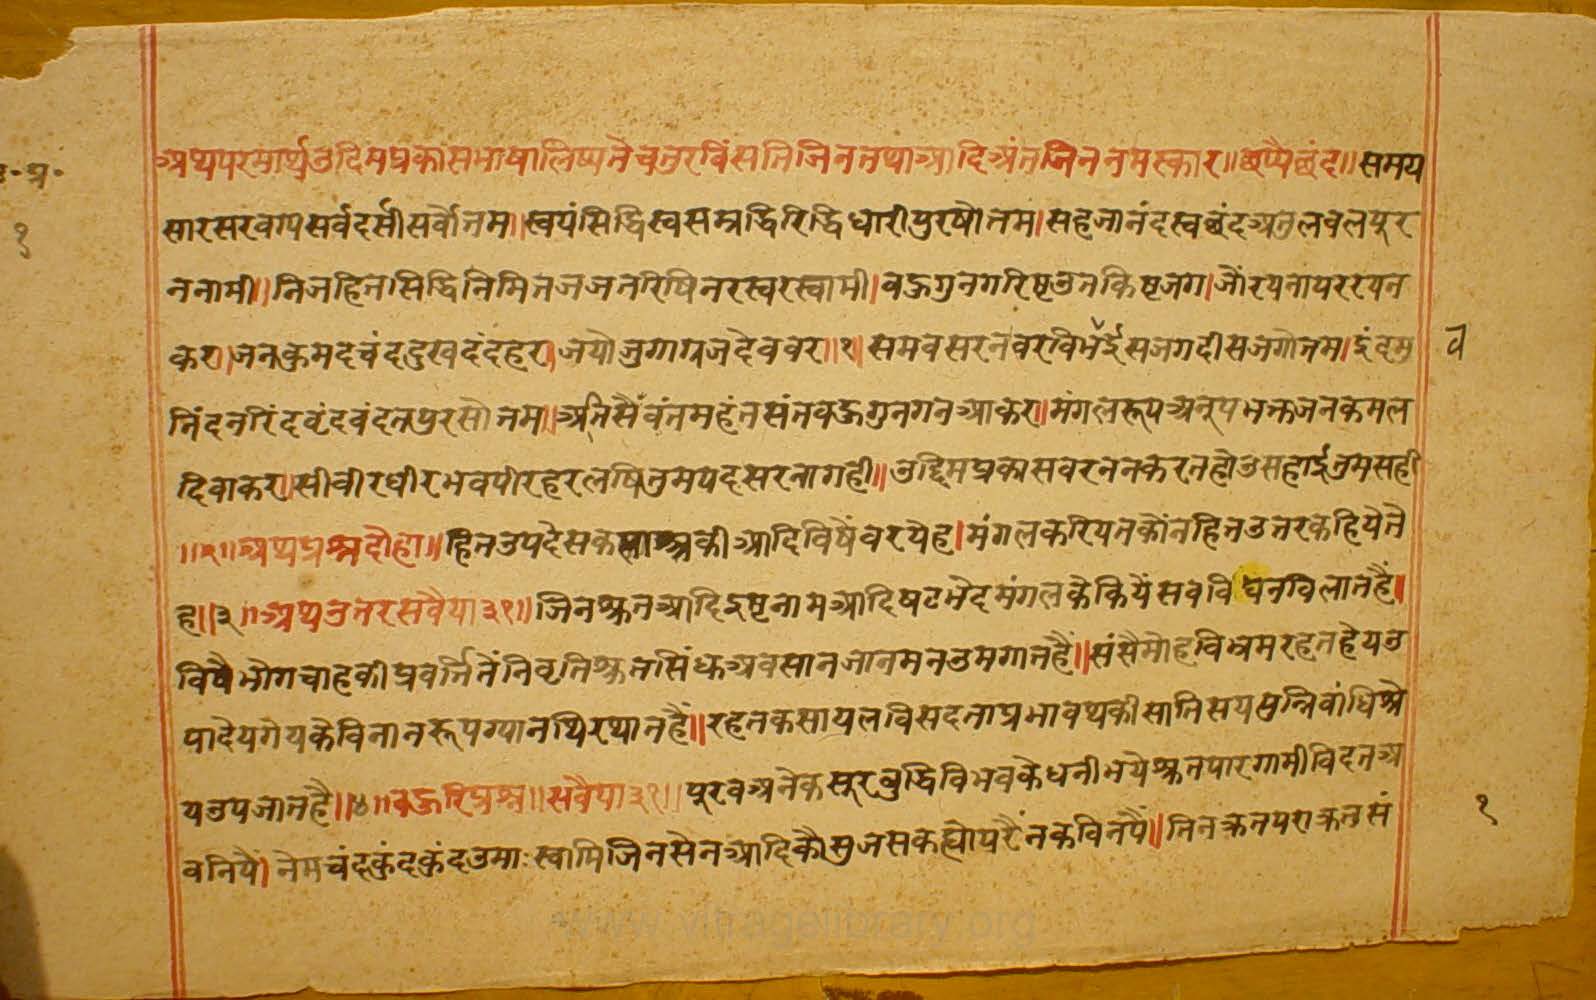 अथपरमार्थउदिमप्रकासभाषालिष्यतेचतुरविंसतिजिनतथाआदिअंतजिननमस्कार॥छप्पैछंद॥समय
सारसरवग्यसर्वदर्सीसर्वोतम॥स्वयंसिद्धिस्वसम्रद्धिरिद्धिधारीपुरषोतम।सहजानंदस्वछंदअतुलबलपूर
ननामी॥निजहितसिद्धिनिमितजजतरिषिनरस्वरस्वामी।वऊगुनगरिष्टउतकिष्टजग।
करा।जनकुमदचंददुखदंदहर।जयो देववर॥१॥समवसरन जगदीसजगोतम।इंदमु
निंदनरिंदवृंदवंदतपुरसोतम॥अतिसैवंतमहंतसंतवऊगुनगनआकर॥मंगलरूपअनूपभक्तजनकमल
दिवाकर॥सीवीरधीरभवपीरहरलषितुमपदसरनागही॥उद्दिमप्रकासवरननकरनहोउसहाईतुमसही
॥२॥अथप्रश्नदोहा॥हितउपदेसकसास्त्रकीआदिविषैंवरयेह।मंगलकरियतकौंनहितउतरकहियेते
ह॥३॥अथउतरसवैया३१॥जिनश्रुतआदिइष्टनामआदिषटभेदमंगलकेकियेंसबविघनविलातहैं॥
विषैभोगचाहकीप्रवर्तितेंनिवृतिश्रुतसिंधुअवसानजानमनउमगातहैं॥संसैमोहविभ्रमरहतहेयउ
पादेयगेयकेविनानरूपग्यानथिरथातहैं॥रहतकसायलविसदताप्रभावथकीसातिसयपुन्निबांधिश्रे
यउपजातहै॥४॥वऊरिप्रश्न॥सवैया३१॥पूरवअनेकसूरबुद्धिविभवकेधनीभयेश्रुतपारगामीविदतअ
वनिपैं।नेमचंदकुंदकुंदउमाःस्वामिजिनसेनआदिकौसुजसकह्योपरैंनकविनपैं॥तिनक्रतपराक्रतसं
व
१
१
www.vitragelibrary.org